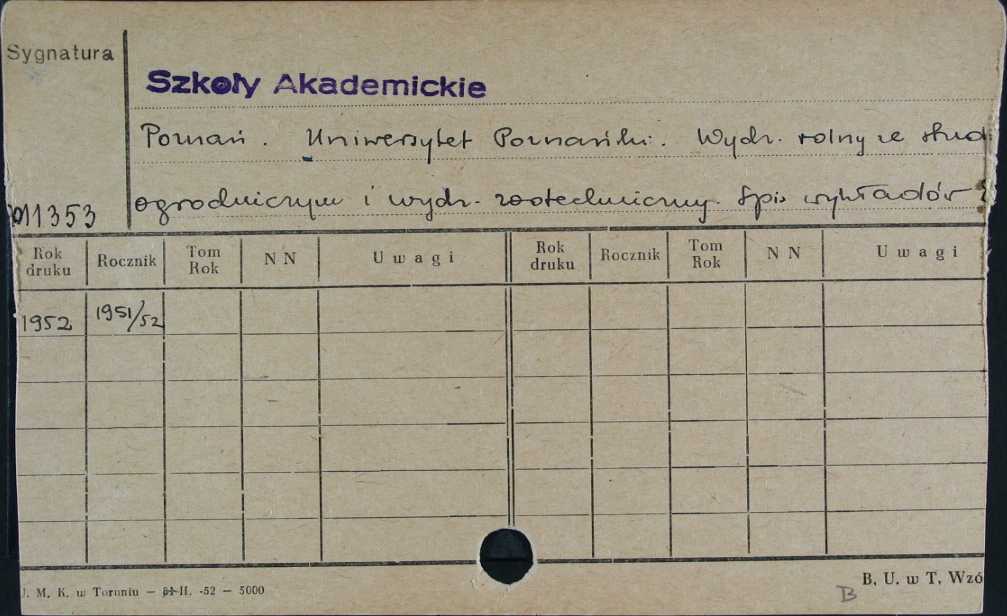 Sygnatura
Szkoły Akademickie
Poznań. Uniwersytet Poznański. Wydz. rolny ze stud.
ogrodniczym i wydz. zootechniczny. Spis wykładów
011353
Rok druku Rocznik Tom Rok N N Uwagi Rok druku Rocznik Tom Rok N N Uwagi
1952 1951/52
J. M. K. w Toruniu — II. -52 — 5000
B. U. w T. Wzó
B